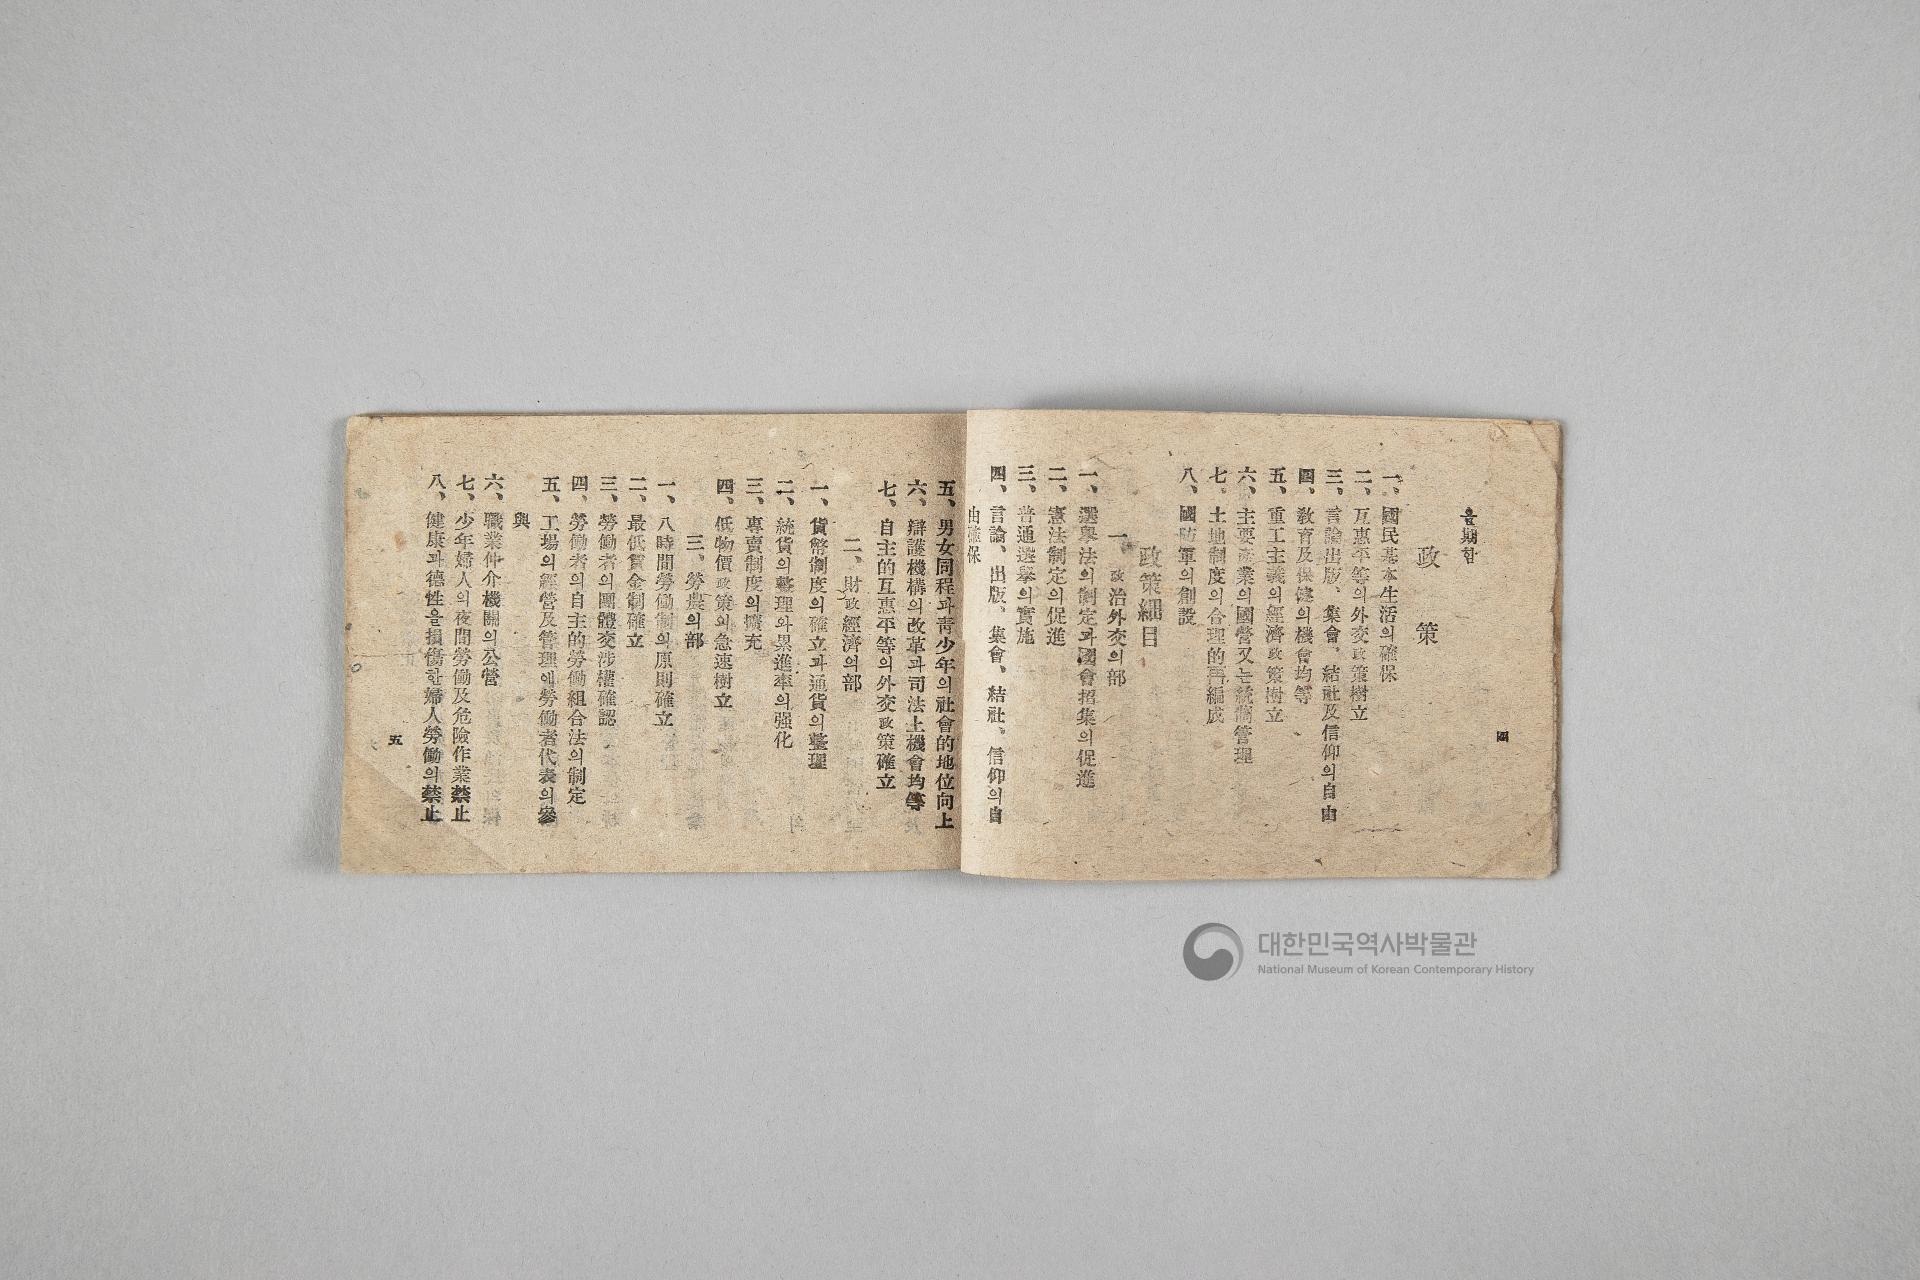 을期함
政策
一、國民基本生活의確保
二、互惠平等의外交政策樹立
三、言論出版、集會、結社及信仰의自由
四、敎育及保健의機會均等
五、重工主義의經濟政策樹立
六、主要產業의國營又는統制管理
七、土地制度의合理的再編成
八、國防軍의創設
政策細目
一、政治外交의部
一、選擧法의制定과國會招集의促進
二、憲法制定의促進
三、普通選擧의實施
四、言論、出版、集會、結社、信仰의自
由確保
四
五、男女同程과靑少年의社會的地位向上
六、辯護機構의改革과司法上機會均等
七、自主的互惠平等의外交政策確立
二、財政經濟의部
一、貨幣制度의確立과通貨의整理
二、統貨의整理와累進率의强化
三、專賣制度의擴充
四、低物價政策의急速樹立
三、勞農의部
一、八時間勞働制의原則確立
二、最低賃金制確立
三、勞働者의團體交涉權確認
四、勞働者의自主的勞働組合法의制定
五、工場의經營及管理에勞働者代表의參
與
六、職業仲介機關의公營
七、少年婦人의夜間勞働及危險作業禁止
八、健康과德性을損傷한婦人勞働의禁止
五
대한민국역사박물관
National Museum of Korean Contemporary History